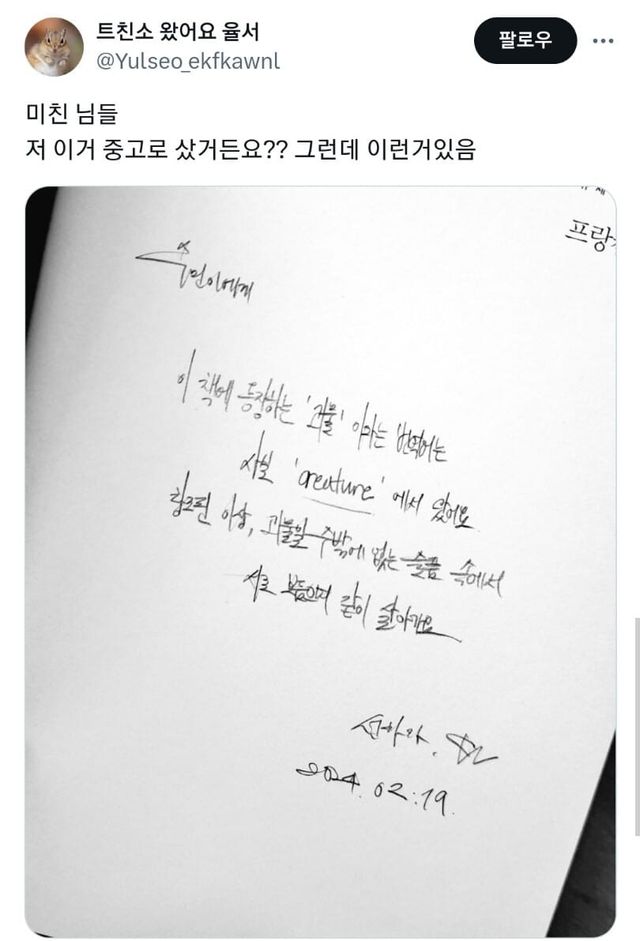 트친소 왔어요 율서
@Yulseo_ekfkawnl
팔로우
미친 님들
저 이거 중고로 샀거든요?? 그런데 이런거있음
프랑
이 책에 등장하는 '괴물' 이라는 번역어는
사실 'creature' 에서 왔어요
이상, 괴물일 수밖에 없는 슬픔 속에서
서로 보듬으며 같이 살아가요
2024. 02. 19.